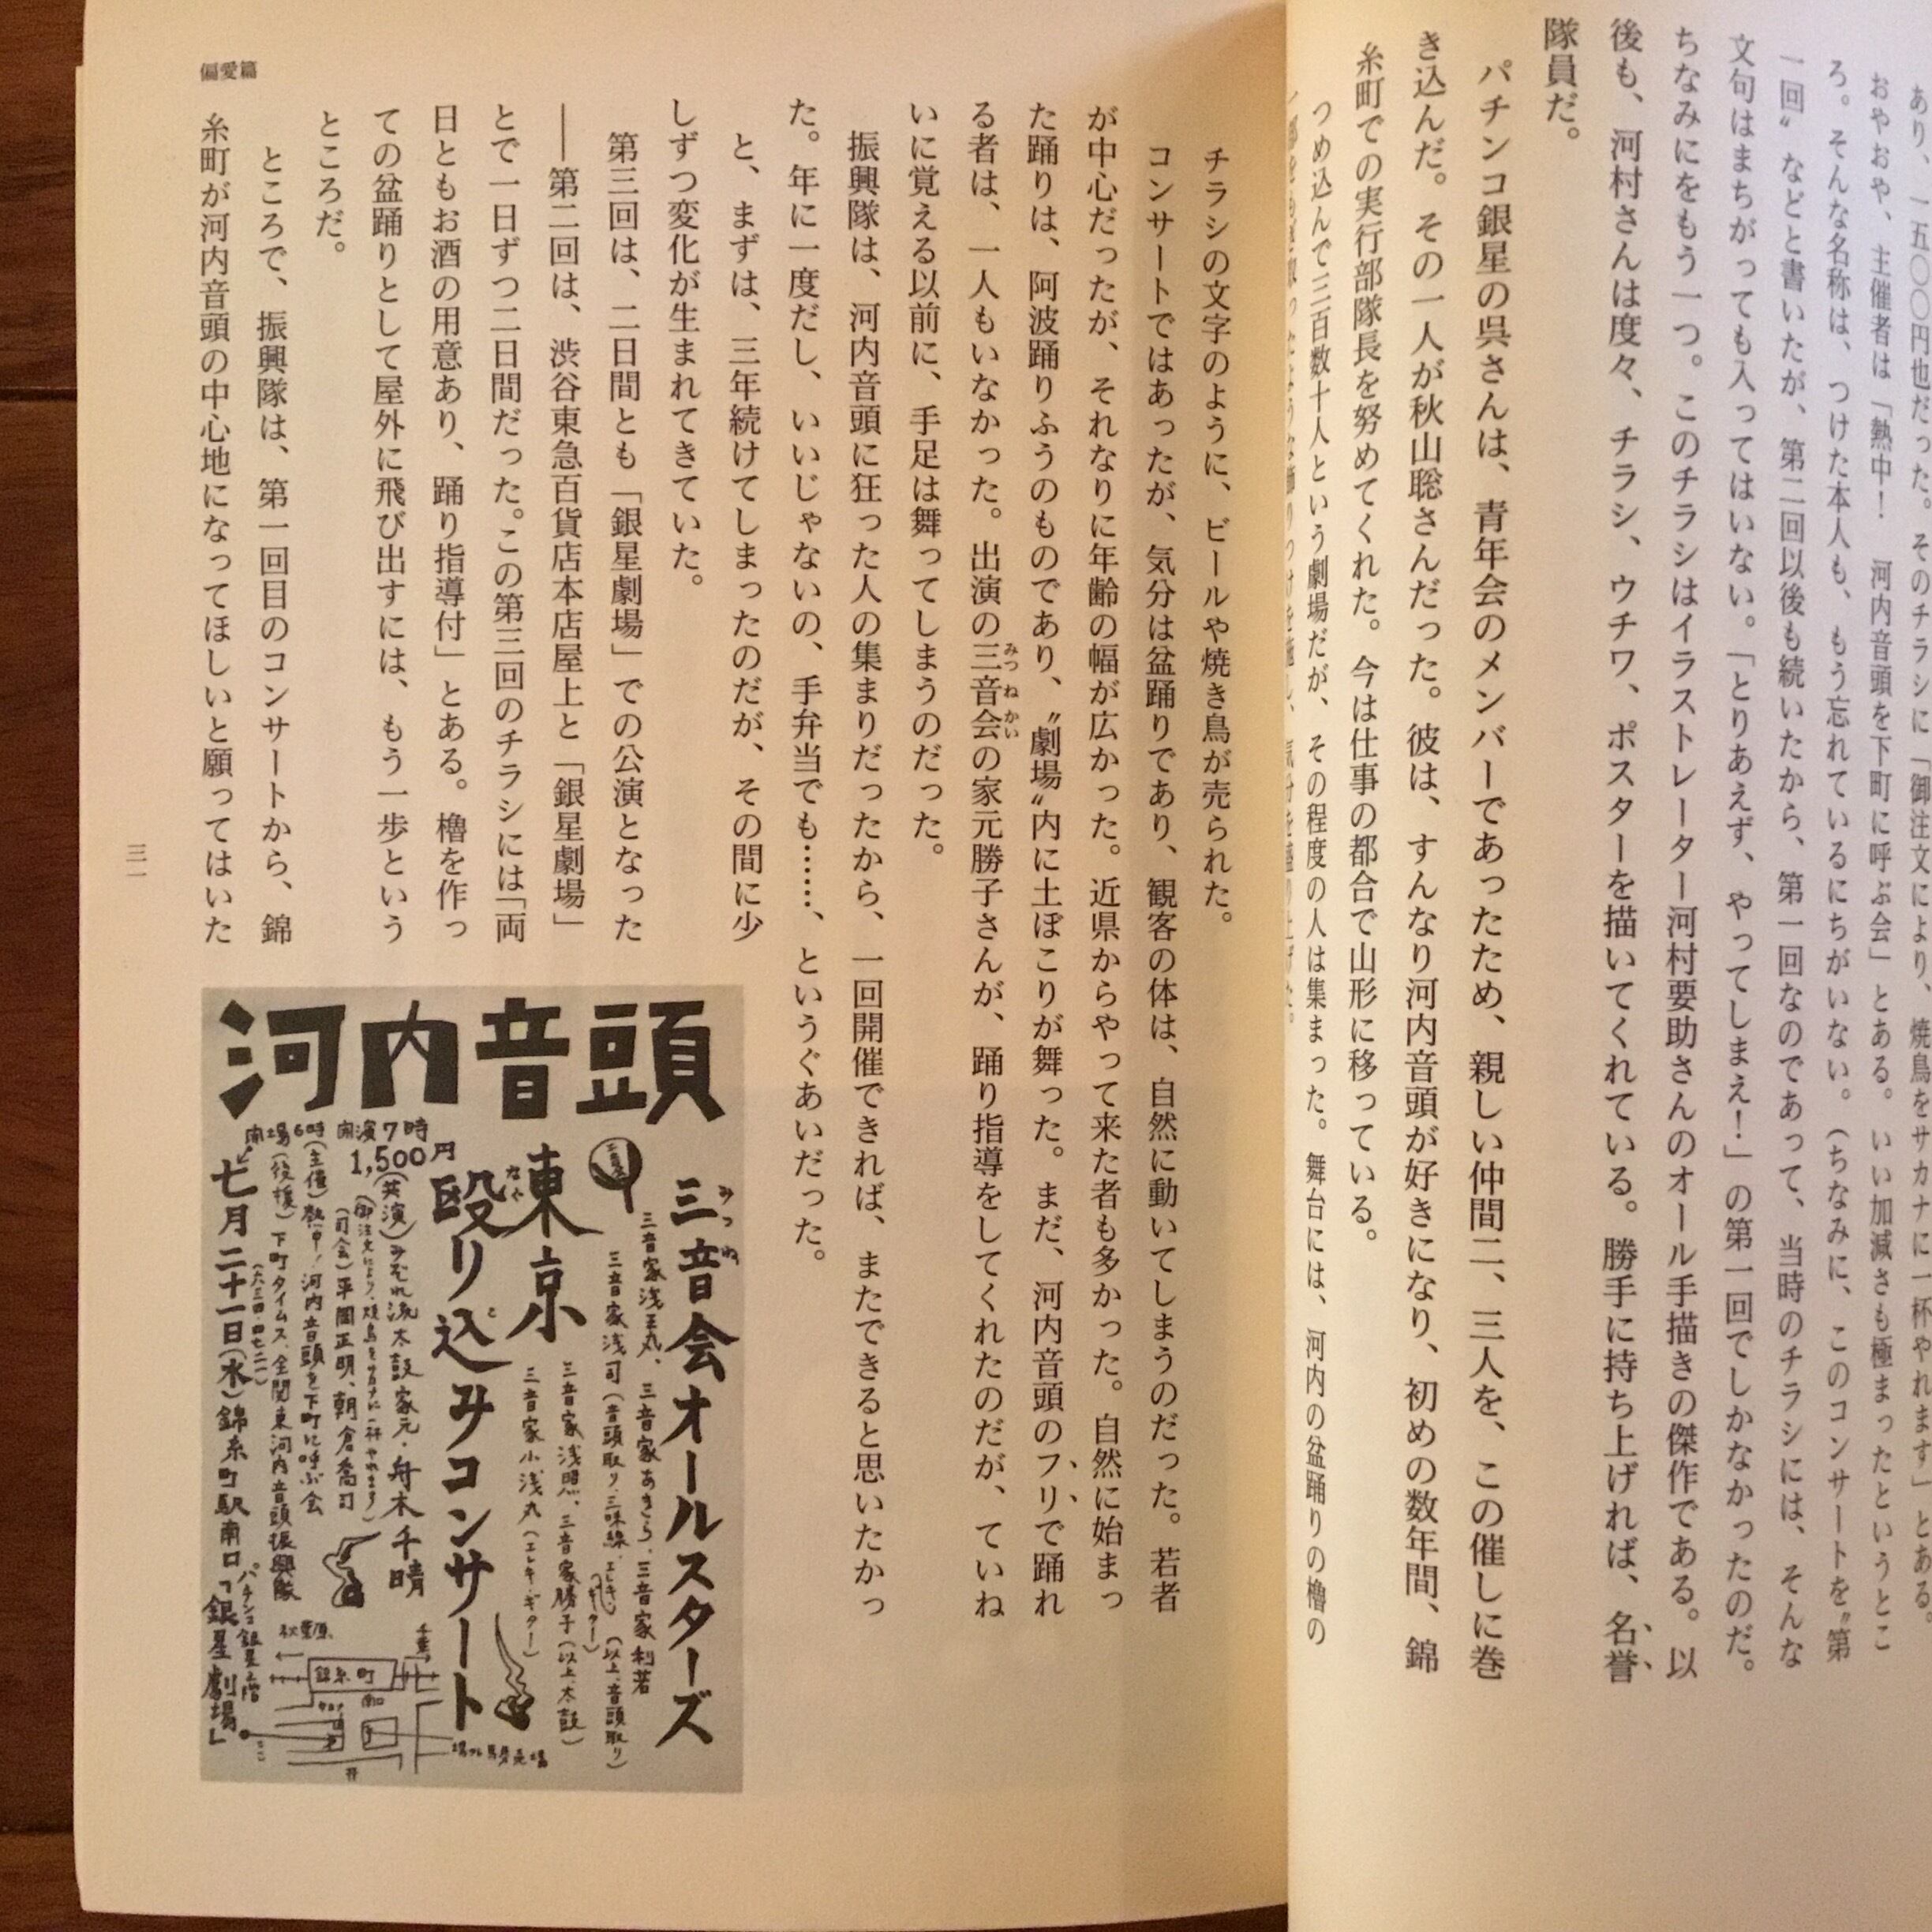 あり、一五〇〇円也だった。そのチラシに「御注文により、焼鳥をサカナに一杯やれます」とある。
おやおや、主催者は「熱中！　河内音頭を下町に呼ぶ会」とある。いい加減さも極まったというとこ
ろ。そんな名称は、つけた本人も、もう忘れているにちがいない。（ちなみに、このコンサートを〝第
一回〟などと書いたが、第二回以後も続いたから、第一回なのであって、当時のチラシには、そんな
文句はまちがっても入ってはいない。「とりあえず、やってしまえ！」の第一回でしかなかったのだ。
ちなみにをもう一つ。このチラシはイラストレーター河村要助さんのオール手描きの傑作である。以
後も、河村さんは度々、チラシ、ウチワ、ポスターを描いてくれている。勝手に持ち上げれば、名誉
隊員だ。
パチンコ銀星の呉さんは、青年会のメンバーであったため、親しい仲間二、三人を、この催しに巻
き込んだ。その一人が秋山聡さんだった。彼は、すんなり河内音頭が好きになり、初めの数年間、錦
糸町での実行部隊長を努めてくれた。今は仕事の都合で山形に移っている。
つめ込んで三百数十人という劇場だが、その程度の人は集まった。舞台には、河内の盆踊りの櫓の
チラシの文字のように、ビールや焼き鳥が売られた。
コンサートではあったが、気分は盆踊りであり、観客の体は、自然に動いてしまうのだった。若者
が中心だったが、それなりに年齢の幅が広かった。近県からやって来た者も多かった。自然に始まっ
た踊りは、阿波踊りふうのものであり、〝劇場〟内に土ぼこりが舞った。まだ、河内音頭のフリで踊れ
る者は、一人もいなかった。出演の三音会の家元勝子さんが、踊り指導をしてくれたのだが、ていね
みつねかい
いに覚える以前に、手足は舞ってしまうのだった。
振興隊は、河内音頭に狂った人の集まりだったから、一回開催できれば、またできると思いたかっ
た。年に一度だし、いいじゃないの、手弁当でも……、というぐあいだった。
と、まずは、三年続けてしまったのだが、その間に少
しずつ変化が生まれてきていた。
第三回は、二日間とも「銀星劇場」での公演となった
――第二回は、渋谷東急百貨店本店屋上と「銀星劇場」
とで一日ずつ二日間だった。この第三回のチラシには「両
日ともお酒の用意あり、踊り指導付」とある。櫓を作っ
ての盆踊りとして屋外に飛び出すには、もう一歩という
ところだ。
ところで、振興隊は、第一回目のコンサートから、錦
糸町が河内音頭の中心地になってほしいと願ってはいた
偏愛篇
三一
河内音頭
三音会オールスターズ
みつね
三音家浅王丸、三音家あきら、三音家利若
三音家浅司（音頭取り、三味線、エレキギター）（以上、音頭取り）
三音家浅照、三音家勝子（以上、太鼓）
三音家小浅丸（エレキ・ギター）
東京
殴り込みコンサート
なぐ
こ
開場6時 開演7時
1,500円
（共演）みぞれ流太鼓家元・舟木千晴
（御注文により、焼鳥をサカナに一杯やれます）
（司会）平岡正明、朝倉喬司
（主催）熱中！河内音頭を下町に呼ぶ会
（後援）下町タイムス、全関東河内音頭振興隊
七月二十一日（水）錦糸町駅南口「銀星劇場」
パチンコ銀星
秋葉原
錦糸町
千葉
南口